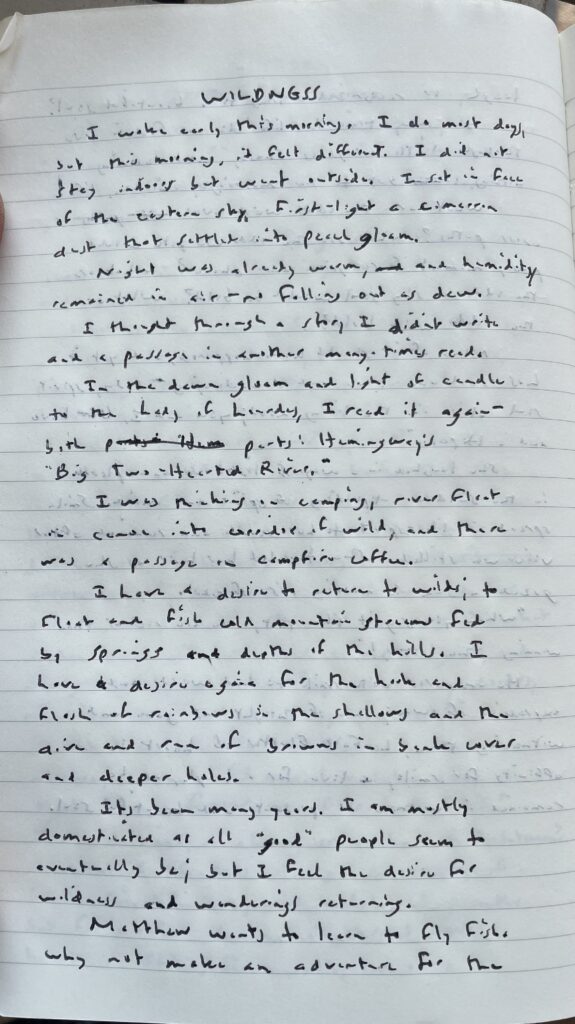 WILDNESS
I woke early this morning. I do most days,
but this morning, it felt different. I did not
stay indoors but went outside. I sat in face
of the eastern sky, first-light a cimarron
dust that settled into peach gloam.
Night was already warm, and humidity
remained in air - no falling out as dew.
I thought through a story I didn't write
and a passage in another many-times read.
In the dawn gloam and light of candle
to the Lady of Lourdes, I read it again-
both parts: Hemingway's
"Big Two-Hearted River."
I was thinking on camping, river float
in canoe into corridor of wild, and there
was a passage on campfire coffee.
I have a desire to return to wilds; to
float and fish cold mountain streams fed
by springs and depths of the hills. I
have a desire again for the hook and
flash of rainbows in the shallows and the
dive and run of browns in bank cover
and deeper holes.
Its been many years. I am mostly
domesticated as all "good" people seem to
eventually be; but I feel the desire for
wildness and wanderings returning.
Matthew wants to learn to fly fish.
why not make an adventure for the